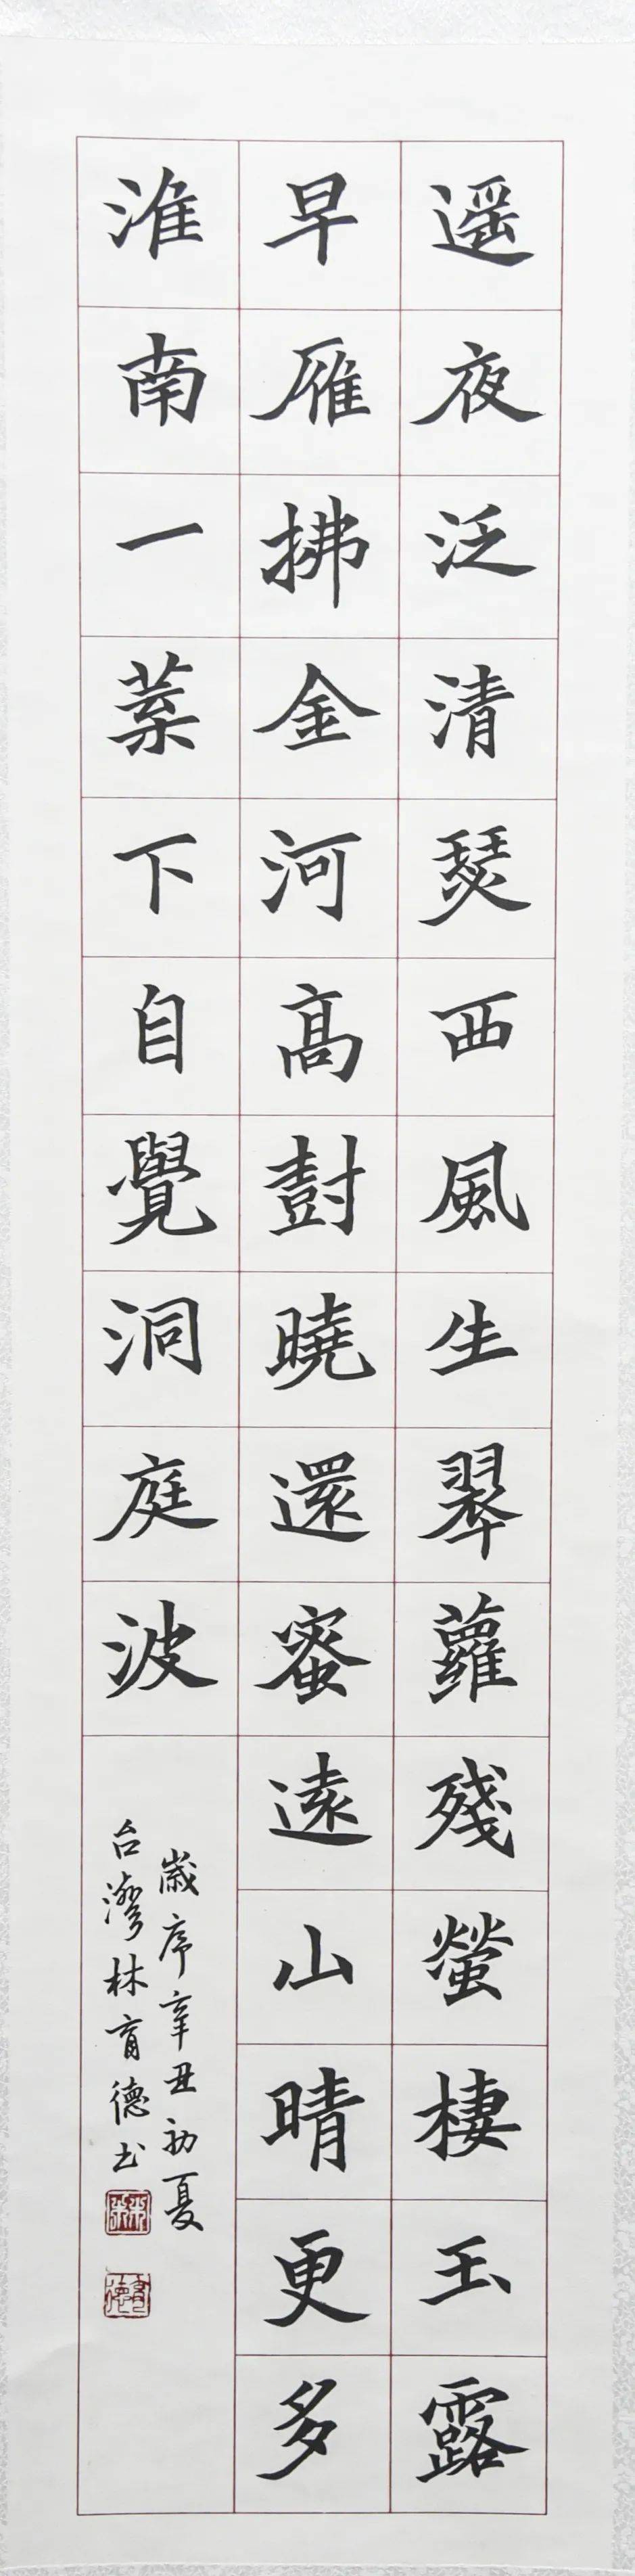 遥夜泛清瑟西風生翠蘿殘螢棲玉露
早雁拂金河高尌曉還蜜遠山晴更多
淮南一葉下自覺洞庭波
歲序辛丑初夏
台灣林育德书